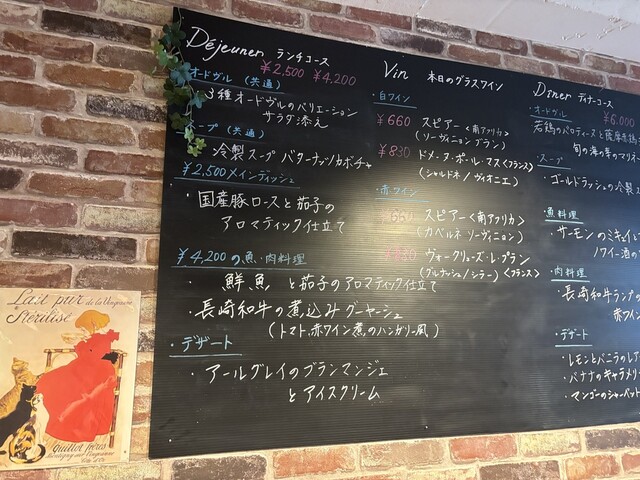 Déjeuner ランチコース
¥2,500 ¥4,200
オードヴル (共通)
3種オードヴルのバリエーション
サラダ添え
スープ (共通)
冷製スープ バターナッツカボチャ
¥2,500メインディッシュ
・国産豚ロースと茄子の
アロマティック仕立て
¥4,200の魚・肉料理
・鮮魚 と茄子のアロマティック仕立て
・長崎和牛の煮込みグーヤーシュ
(トマト、赤ワイン煮のハンガリー風)
・デザート
・アールグレイのブランマンジェ
とアイスクリーム
Vin 本日のグラスワイン
・白ワイン
¥660 スピアー<南アフリカ>
(ソーヴィニョンブラン)
¥830 ドメーヌ・ポール・マス<フランス>
(シャルドネ/ヴィオニエ)
・赤ワイン
¥660 スピアー<南アフリカ>
(カベルネ ソーヴィニョン)
ヴォークリューズ・レ・プラン
(グルナッシュ/シラー) <フランス>
Dîner ディナーコース
・オードヴル ¥6,000
若鶏のバロティーヌと薩摩赤鶏
旬の海の幸のマリネ
・スープ
ゴールドラッシュの冷製
・魚料理
サーモンのミキュイと
ノワイー酒の
・肉料理
長崎和牛ランプ
赤ワイン
・デザート
・レモンとバニラのレア
・バナナのキャラメリ
・マンゴーのシャーベット
Lait pur de la Vingeanne
Stérilisé
Quillot frères
Montigny sur Vingeanne
Côte d'Or